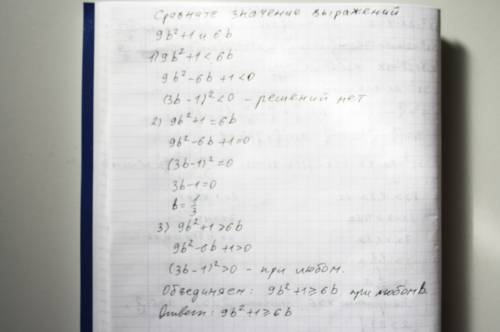 Сравните значение выражений
9b²+1 и 6b
1) 9b²+1<6b
9b²-6b+1<0
(3b-1)²<0 - решений нет
2) 9b²+1=6b
9b²-6b+1=0
(3b-1)²=0
3b-1=0
b=1/3
3) 9b²+1>6b
9b²-6b+1>0
(3b-1)²>0 - при любом.
Объединяем: 9b²+1≥6b при любом b.
Ответ: 9b²+1≥6b